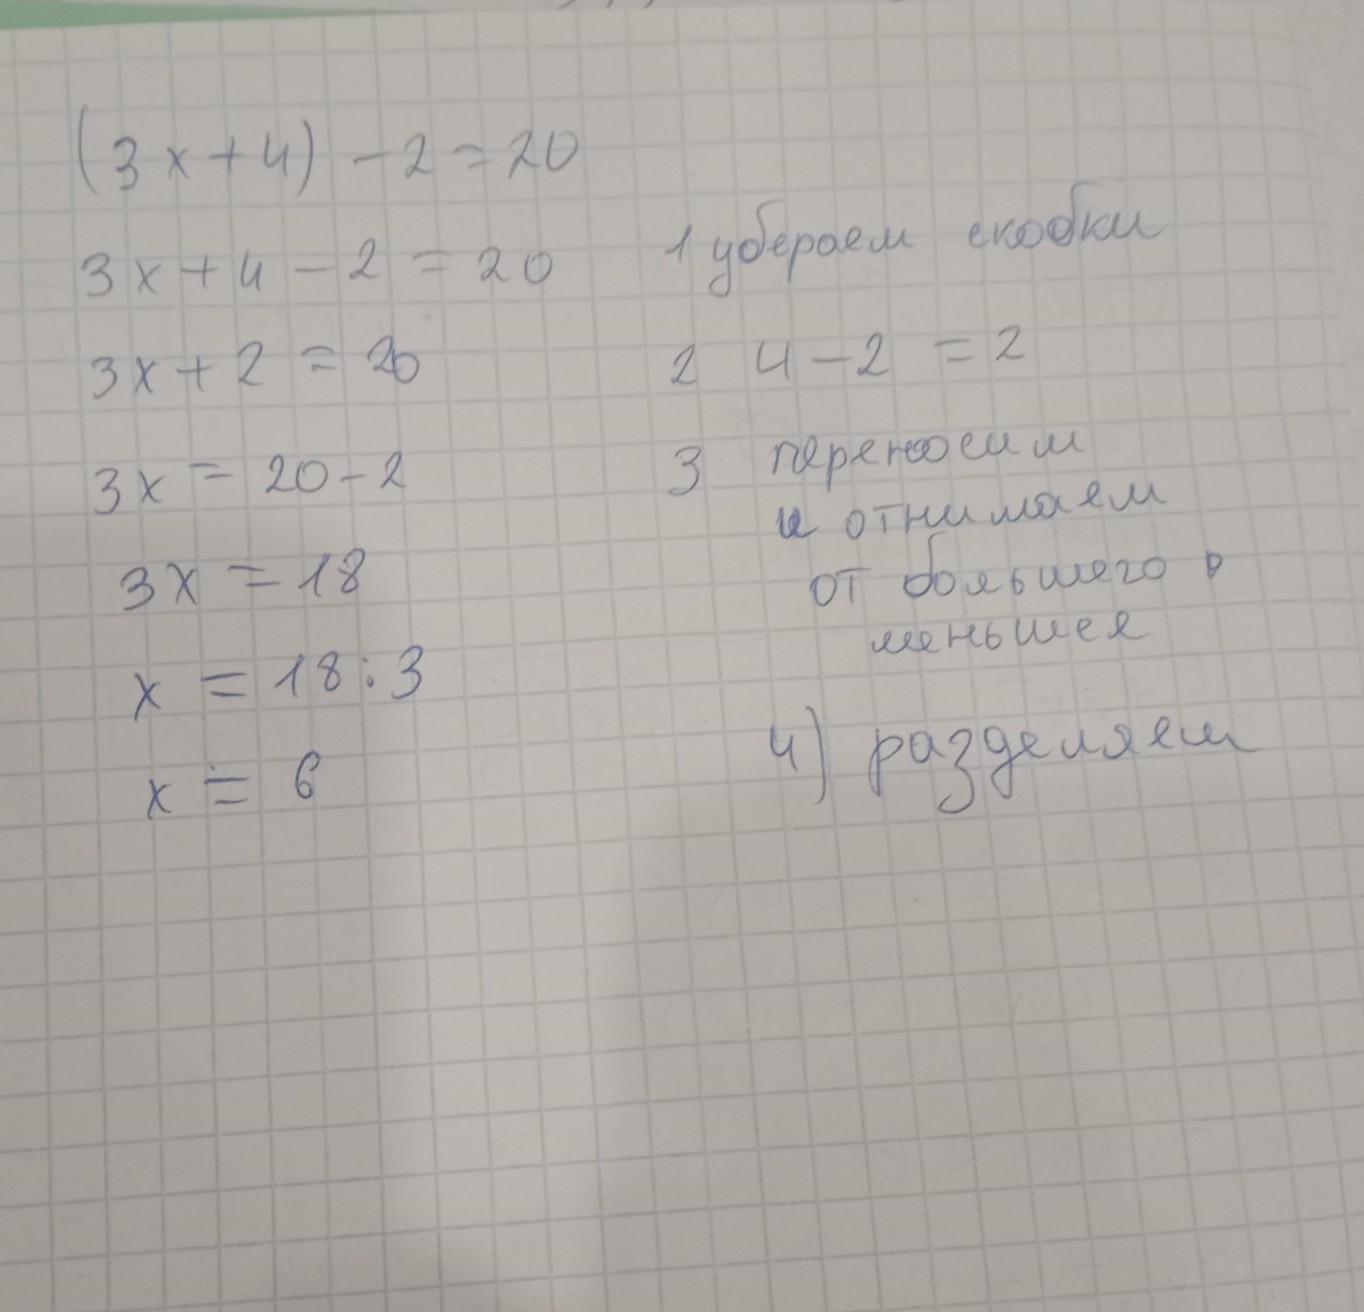 (3x+4) -2=20
3x+4-2=20 1 убераем скобки
3x+2=20 2 4-2=2
3x=20-2 3 переносим
и отнимаем
3x=18 от большего
меньшее
x=18:3
4) разделяем
x=6